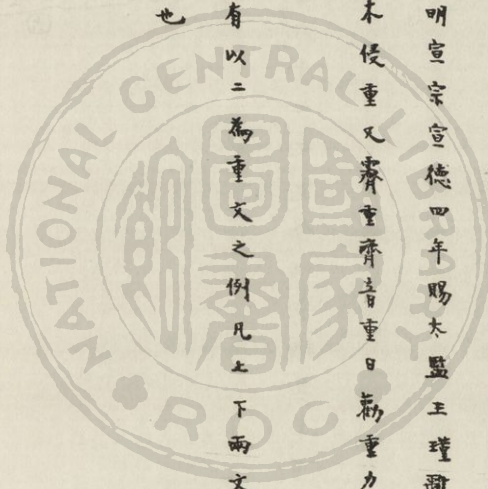 明宣宗宣德四年賜太監王瑾
木侵重又齋重齊音重日勸重力
有以二為重文之例凡上下兩文
也
NATIONAL CENTRAL LIBRARY
ROC
國家圖書館